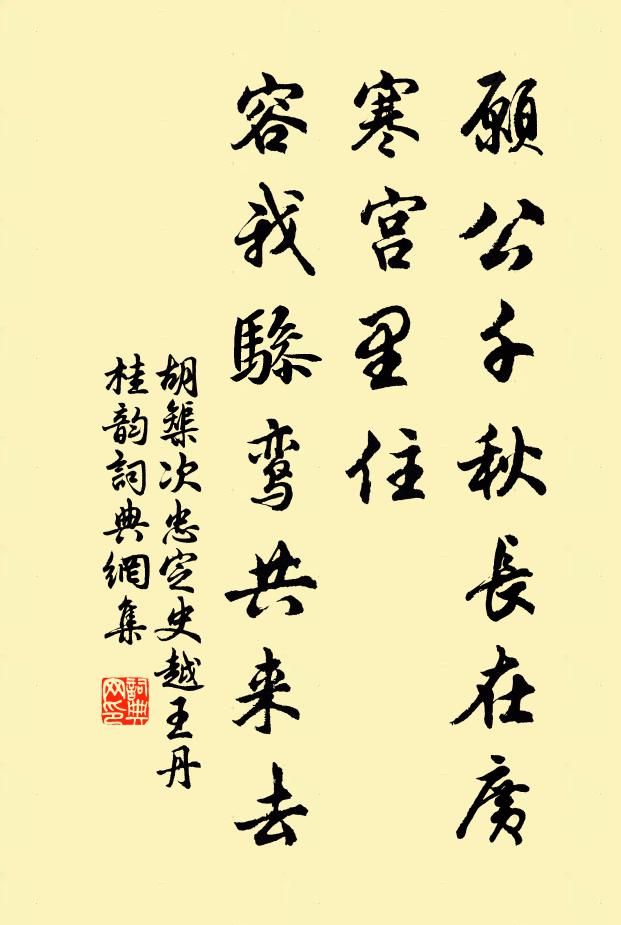 願公千秋長在廣
寒宫里住
容我驂鸾共来去
胡榘次忠定史越王丹
桂韵詞典網集
詞典网印